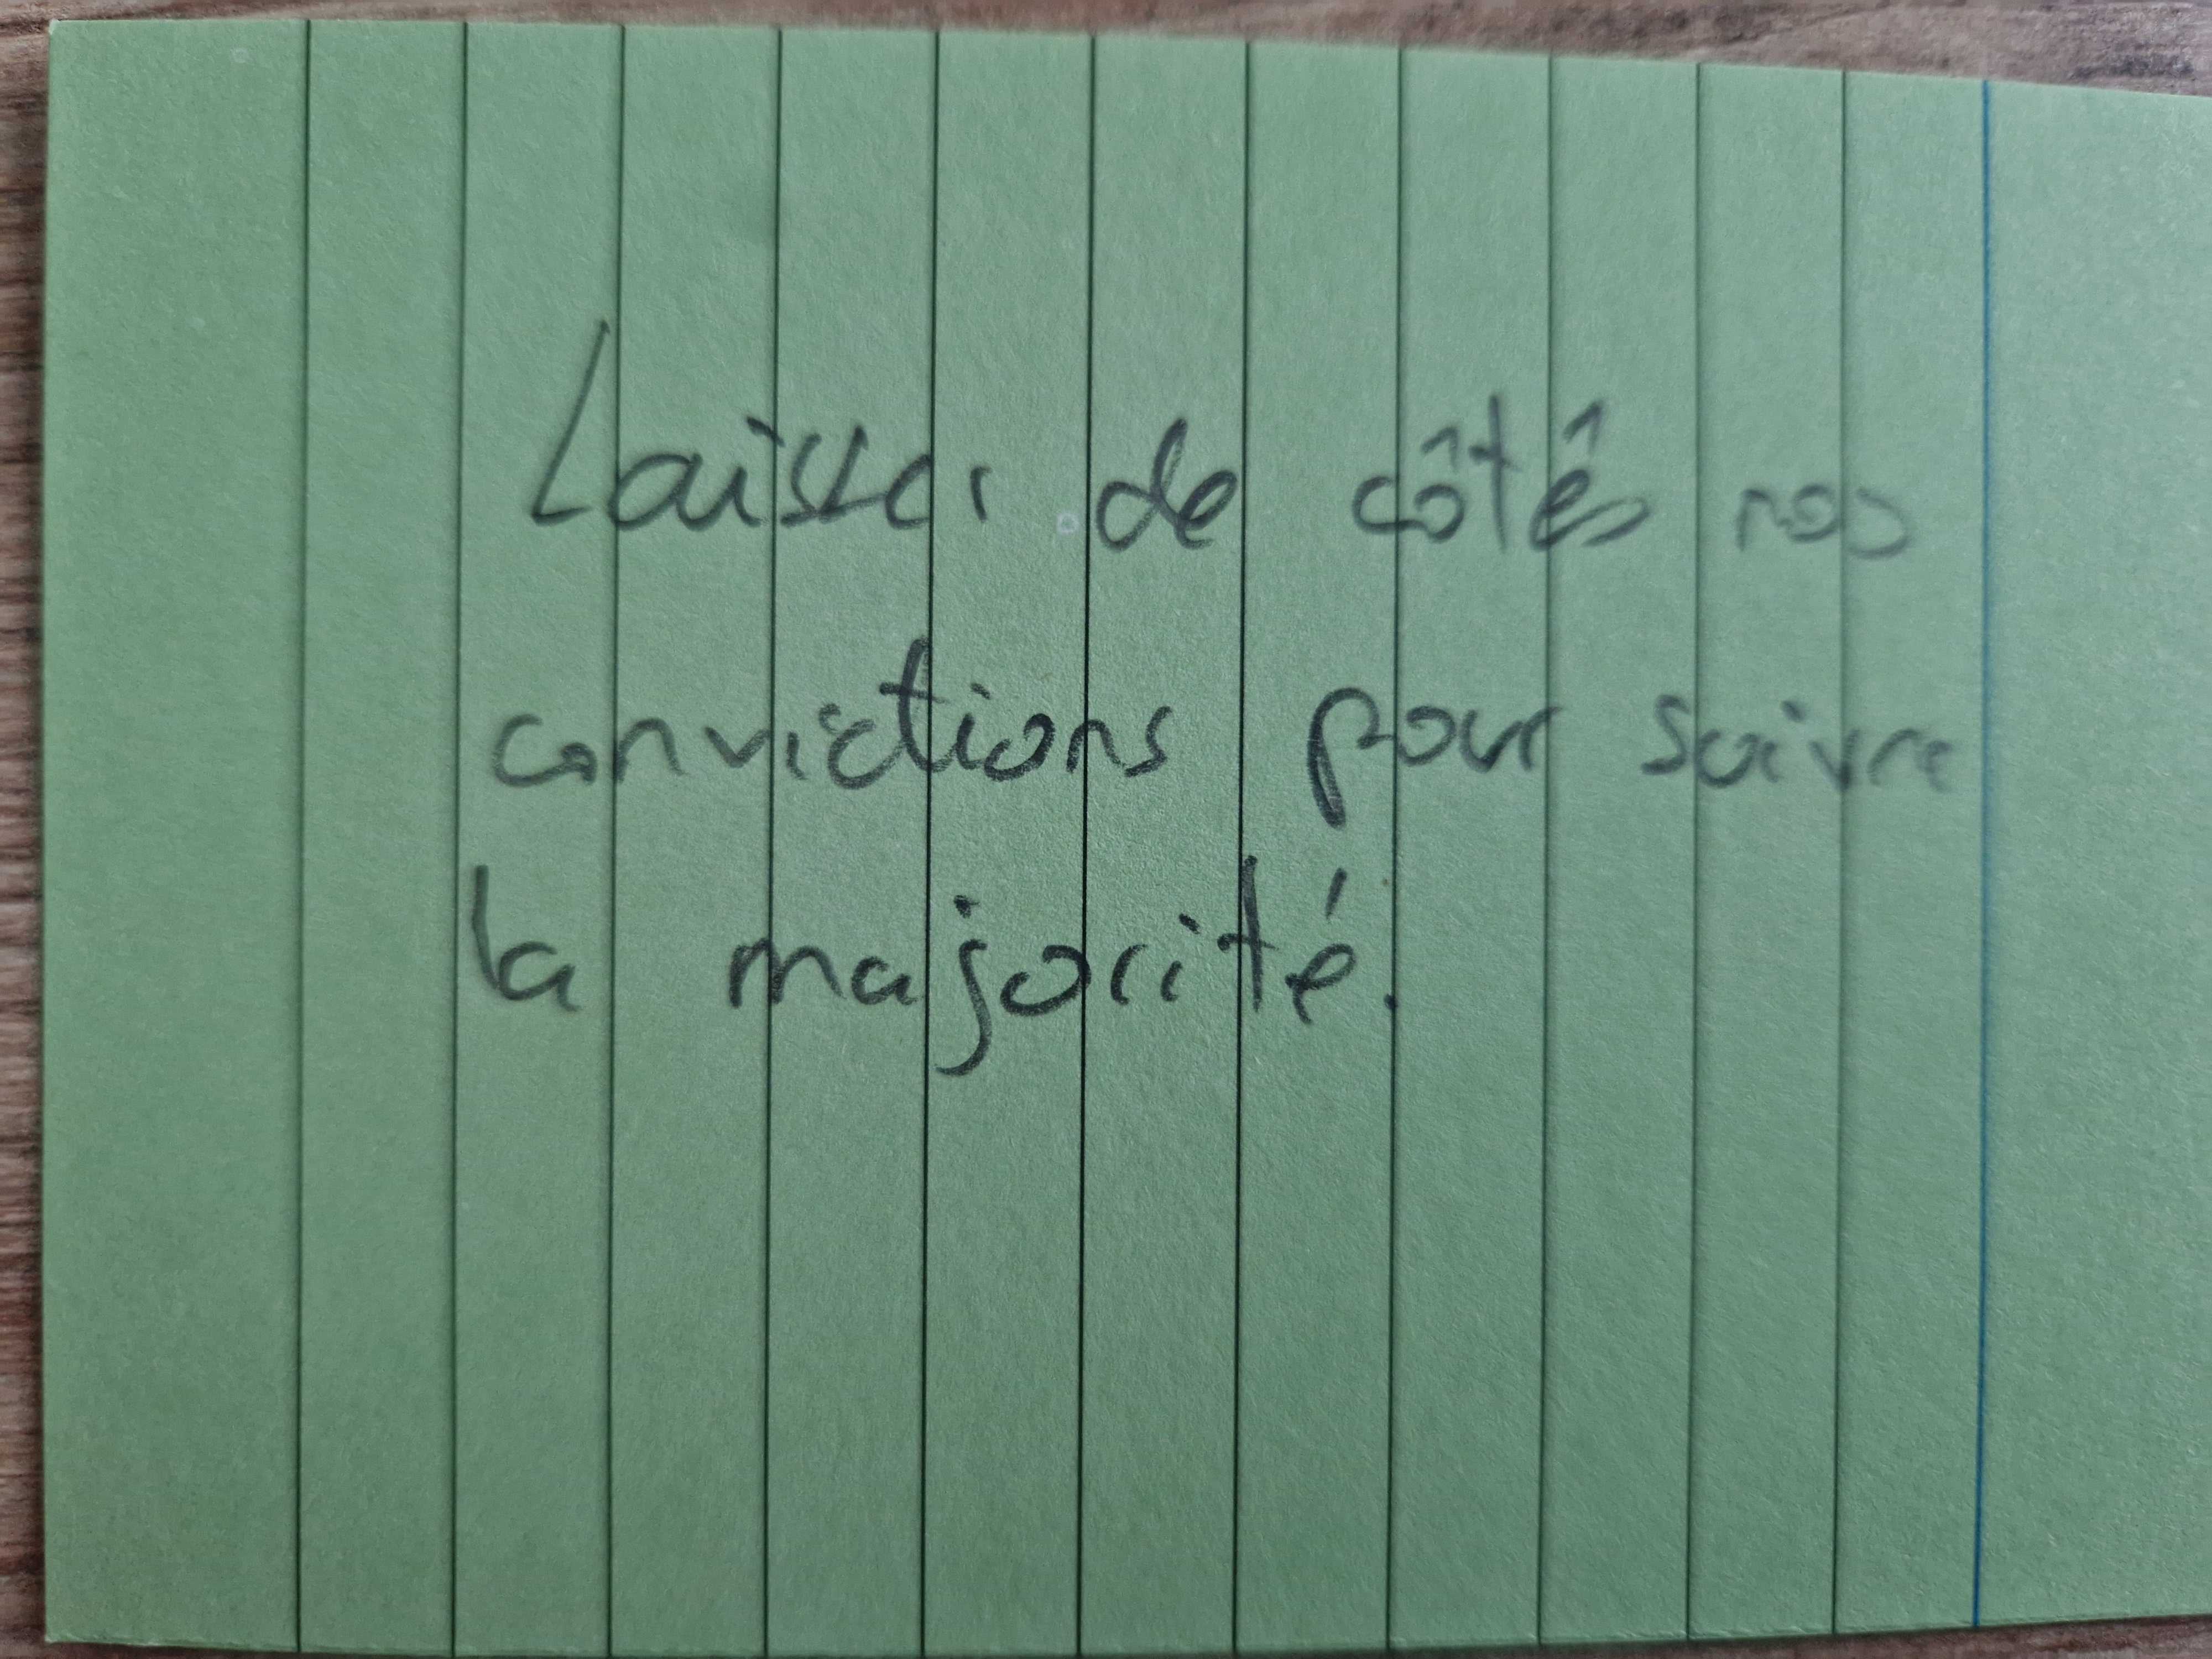 Laisser de côtés nos
convictions pour suivre
la majorité.